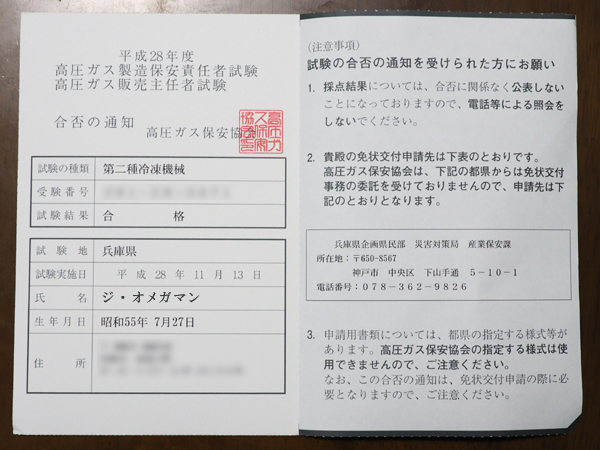 平成28年度
高圧ガス製造保安責任者試験
高圧ガス販売主任者試験
合否の通知
高圧ガス保安協会
試験の種類 第二種冷凍機械
受験番号
試験結果 合 格
試験地 兵庫県
試験実施日 平成 28年 11月 13日
氏名 ジ・オメガマン
生年月日 昭和55年 7月27日
住所
(注意事項)
試験の合否の通知を受けられた方にお願い
1. 採点結果については、合否に関係なく公表しない
ことになっておりますので、電話等による照会を
しないでください。
2. 貴殿の免状交付申請先は下表のとおりです。
高圧ガス保安協会は、下記の都県からは免状交付
事務の委託を受けておりませんので、申請先は下
記のとおりとなります。
兵庫県企画県民部 災害対策局 産業保安課
所在地:〒650-8567
神戸市 中央区 下山手通 5-10-1
電話番号:078-362-9826
3. 申請用書類については、都県の指定する様式等が
あります。高圧ガス保安協会の指定する様式は使
用できませんので、ご注意ください。
なお、この合否の通知は、免状交付申請の際に必
要となりますので、ご注意ください。